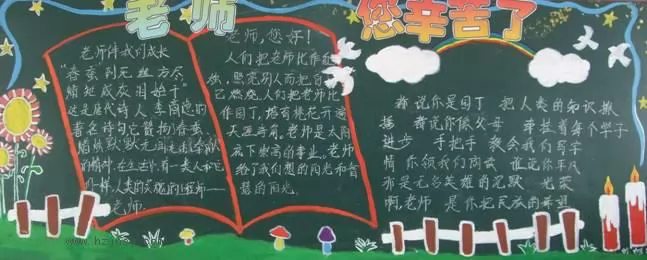 老师 您辛苦了
老师伴我们成长
"春蚕到死丝方尽
蜡炬成灰泪始干"
这是唐代诗人李商隐的
著名诗句它赞物春蚕、
蜡烛默默无闻
的精神，在生活中，有一类人和它
们一样，人类的灵魂的工程师——
老师.
老师，您好！
人们把老师比作红
烛，照亮别人而把自
己燃烧。人们把老师比
作园丁，培育桃花开遍
天涯海角。老师是太阳
底下崇高的事业。老师
给了我们想的阳光和智
慧的阳光。
都说你是园丁 把人类的知识撒
播 都说你像父母 牵挂着每个学子
进步 手把手 教会我们写字
情 你领我们朗读 谁说你平凡
那是无名英雄的沉默 光荣
啊,老师 是你把民族的希望